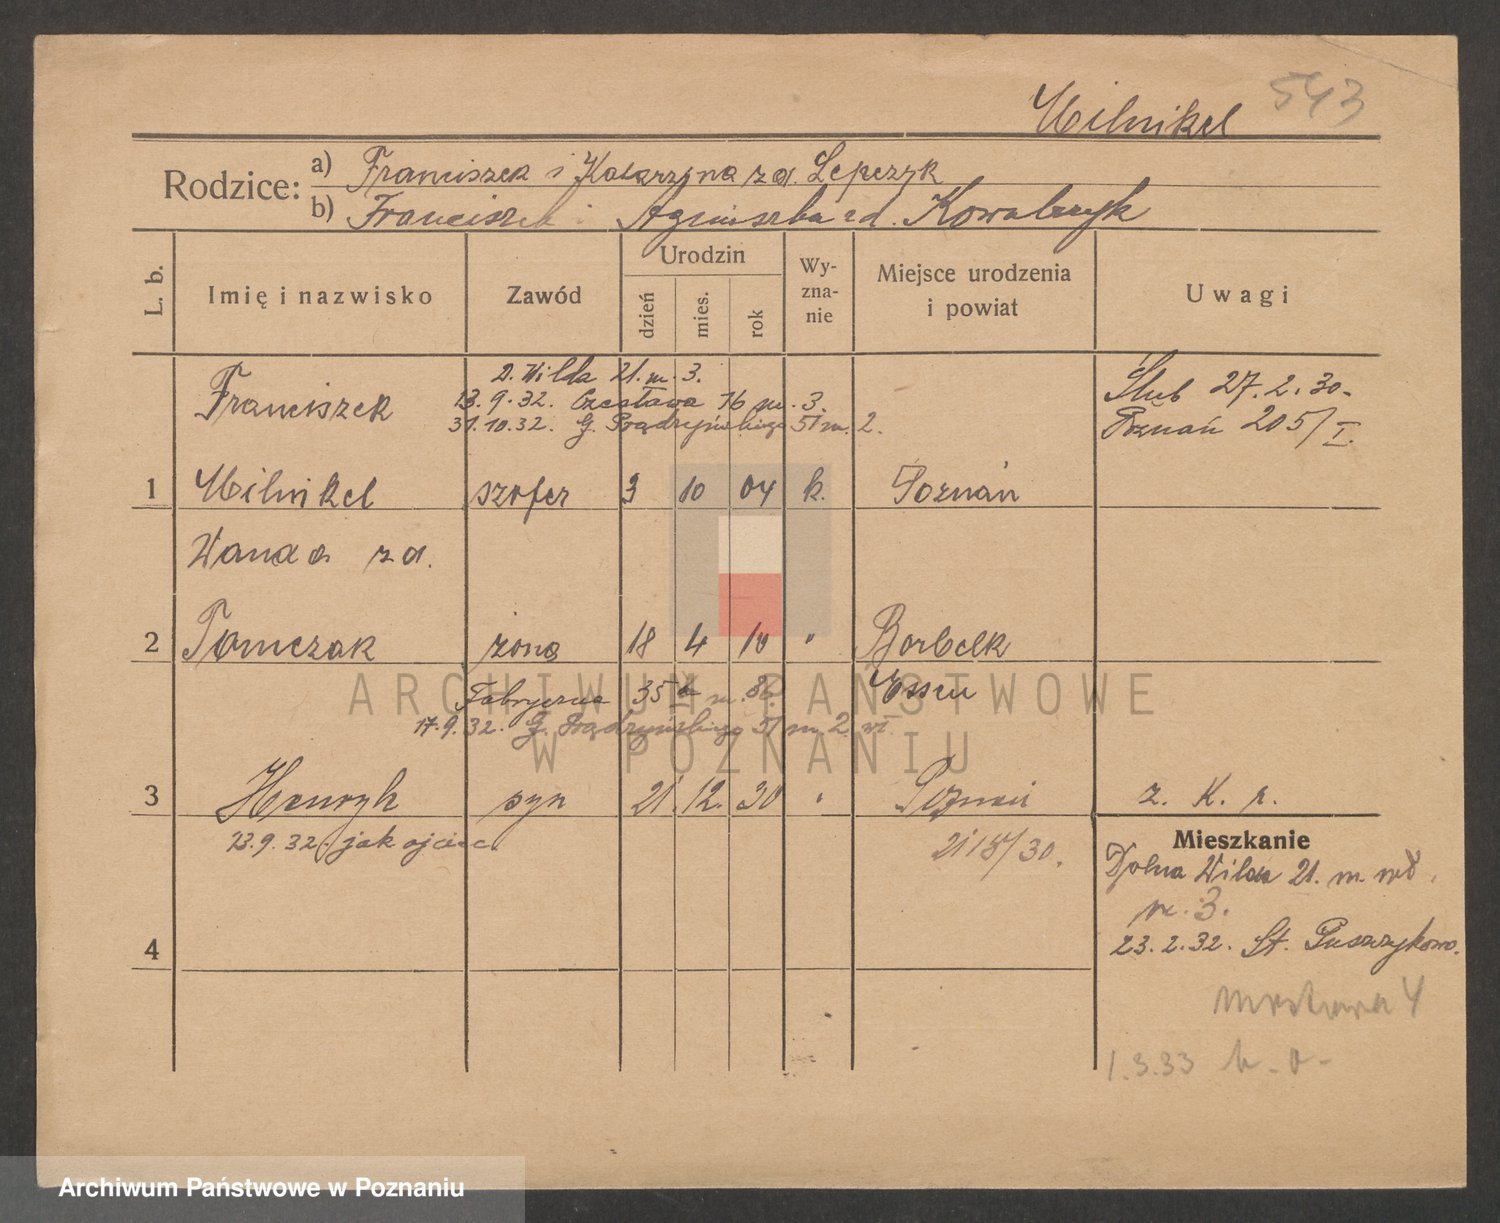 Milnikel 543
Rodzice: a) Franciszek i Katarzyna zd. Lepczyk
b) Franciszek i Agnieszka zd. Kowalczyk
L. b.
Imię i nazwisko
Zawód
Urodzin
dzień
mies.
rok
Wy-
zna-
nie
Miejsce urodzenia
i powiat
Uwagi
D. Wilda 21. m. 3.
13.9.32. Czesława 16 m. 3.
31.10.32. G. Prądzyńskiego 51 m. 2.
Franciszek
Ślub 27.2.30.
Poznań 205/I.
1 Milnikel szofer 3 10 04 k. Poznań
Wanda zd.
2 Tomczak żona 18 4 10 " Borbek
Essen
Fabryczna 35 m. 8
17.9.32. G. Prądzyńskiego 51 m. 2
ARCHIWUM PAŃSTWOWE
W POZNANIU
3 Henryk syn 21. 12. 30 " Poznań z. K. r.
13.9.32. jak ojciec.
2115/30.
Mieszkanie
Dolna Wilda 21. m
m. 3.
23.2.32. St. Puszczykowo.
4
1.3.33
Archiwum Państwowe w Poznaniu